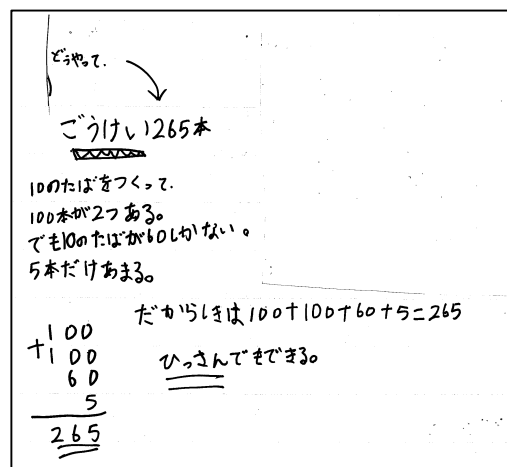 どうやって.
ごうけい265本
10のたばをつくって.
100本が2つある。
でも10のたばが60しかない。
5本だけあまる。
だからしきは100+100+60+5=265
ひっさんでもできる。
100
+100
60
5
265